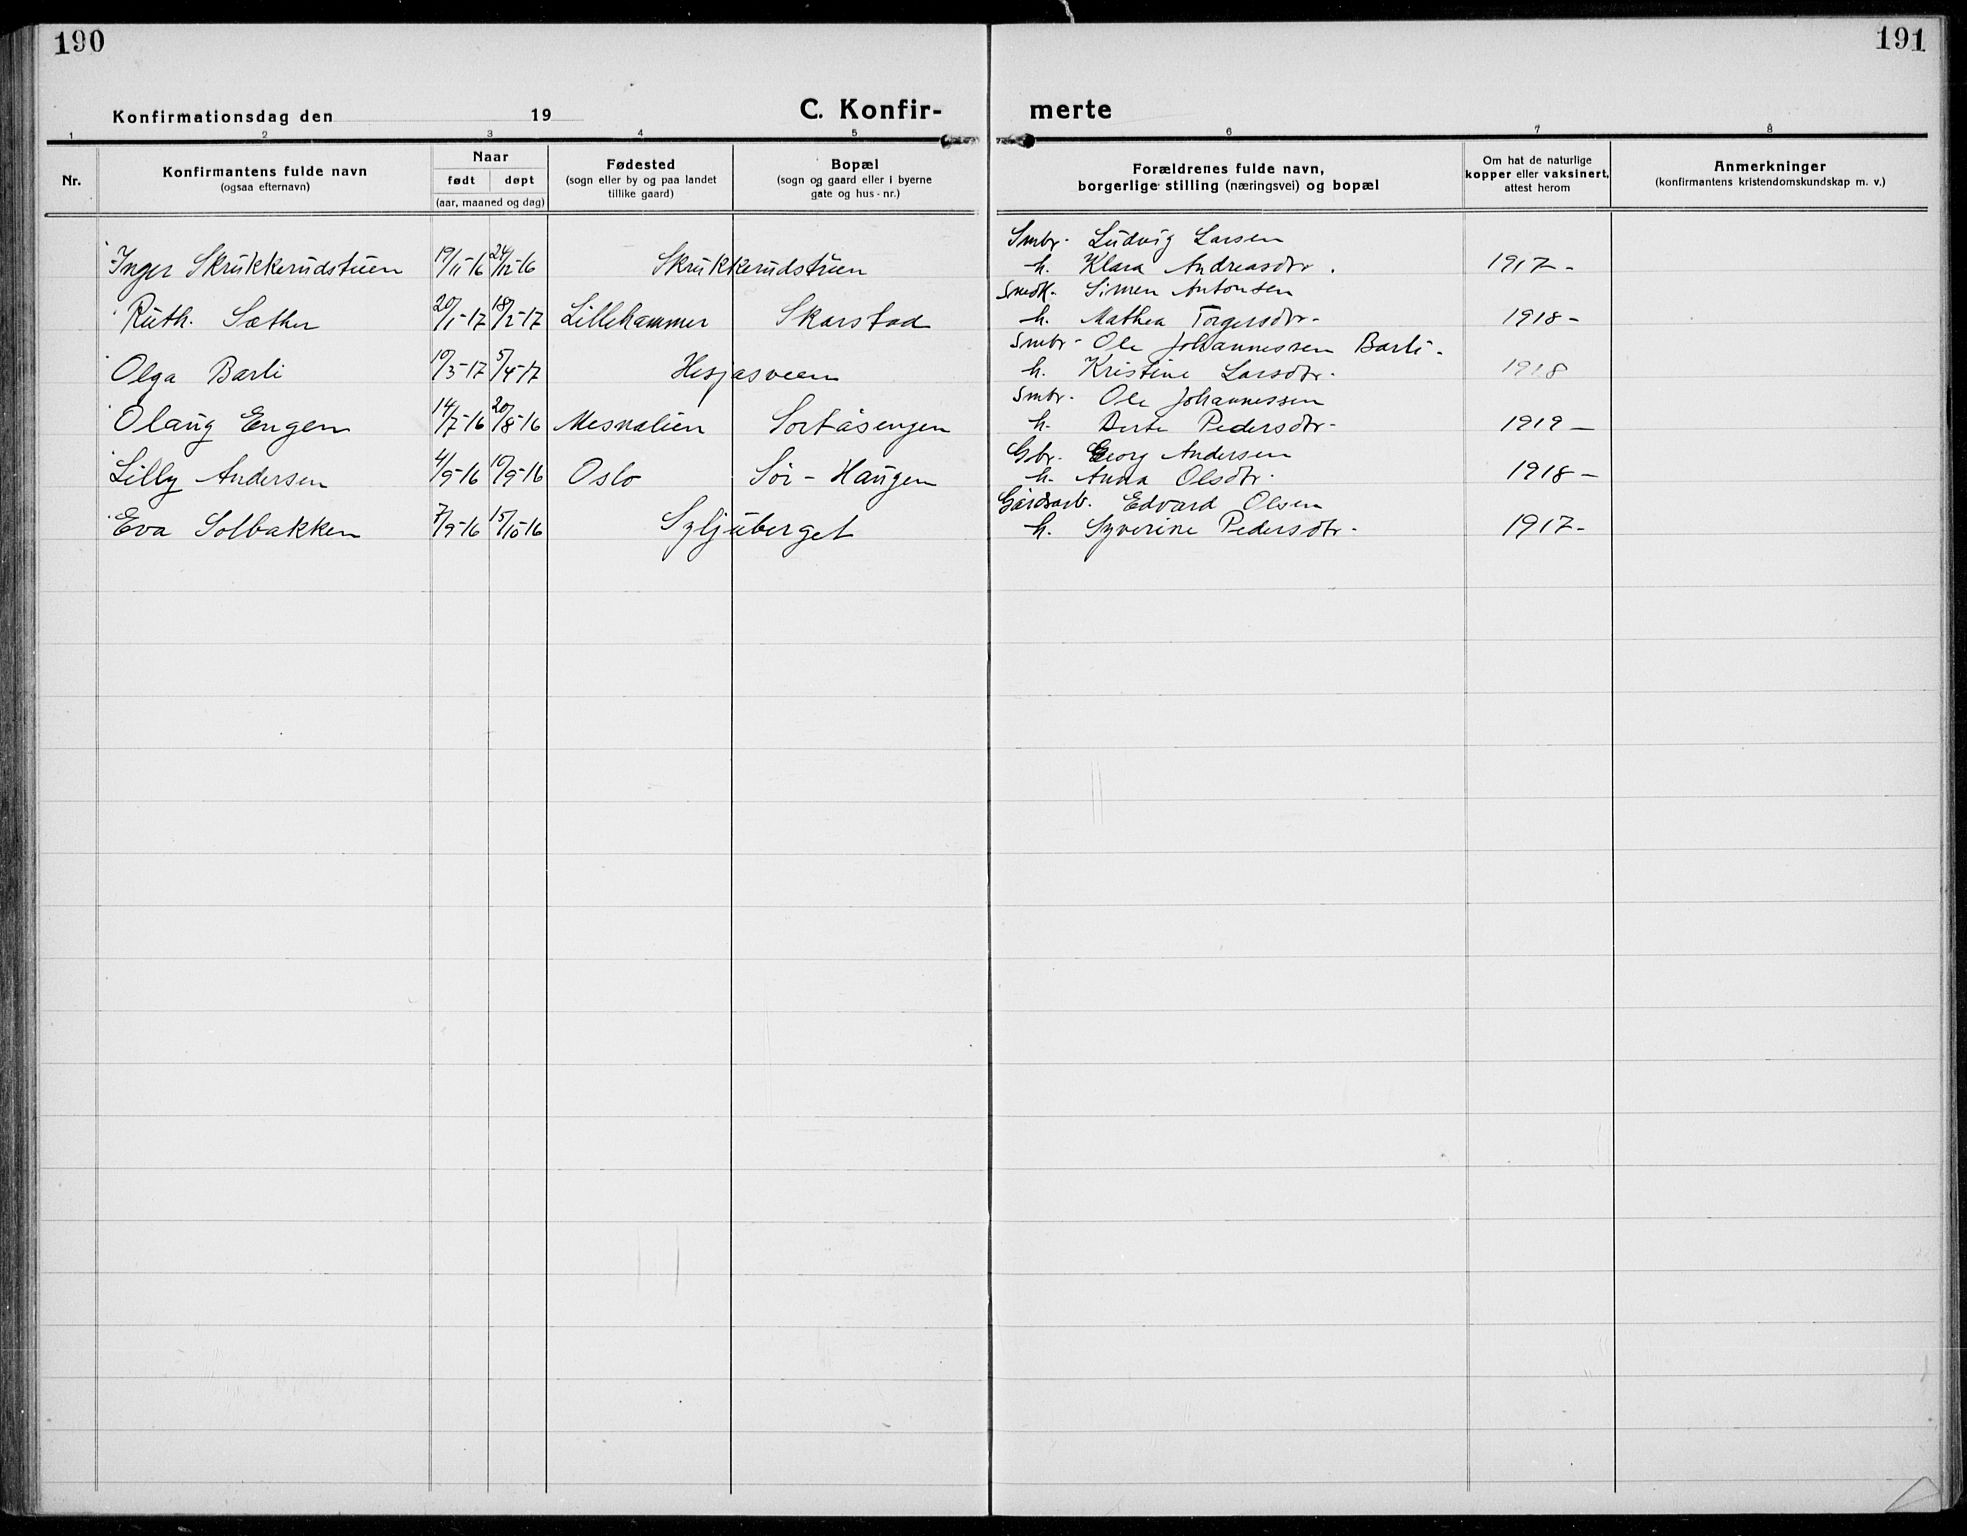 190
191
Konfirmationsdag den 19
C. Konfir-
merte
1 2 3 4 5 6 7 8
Nr.
Konfirmantens fulde navn
(ogsaa efternavn)
Naar
født døpt
(aar, maaned og dag)
Fødested
(sogn eller by og paa landet
tillike gaard)
Bopæl
(sogn og gaard eller i byerne
gate og hus-nr.)
Forældrenes fulde navn,
borgerlige stilling (næringsvei) og bopæl
Om hat de naturlige
kopper eller vaksinert,
attest herom
Anmerkninger
(konfirmantens kristendomskundskap m. v.)
Smbr. Ludvig Larsen
Inger Skrukkerudstuen 19/11-16 24/12-16 Skrukkerudstuen h. Klara Andreasdtr. 1917-
Snedk. Simen Antonsen
Ruth. Sæther 20/1-17 18/2-17 Lillehammer Skarstad h. Mathea Torgersdtr- 1918-
Smbr- Ole Johannessen Barli-
Olga Barli 10/3-17 5/4-17 Hesjasveen h. Kristine Larsdtr- 1918
Smbr. Ole Johannessen
Olaug Engen 14/7-16 20/8-16 Mesnalien Sortåsengen h. Berte Pedersdtr- 1919-
Gbr. Georg Andersen
Lilly Andersen 4/9-16 10/9-16 Oslo Sør-Haugen h. Anna Olsdtr. 1918-
Gårdsarb. Edvard Olsen
Eva Solbakken 7/9-16 15/10-16 Syljuberget h. Syverine Pedersdtr- 1917-